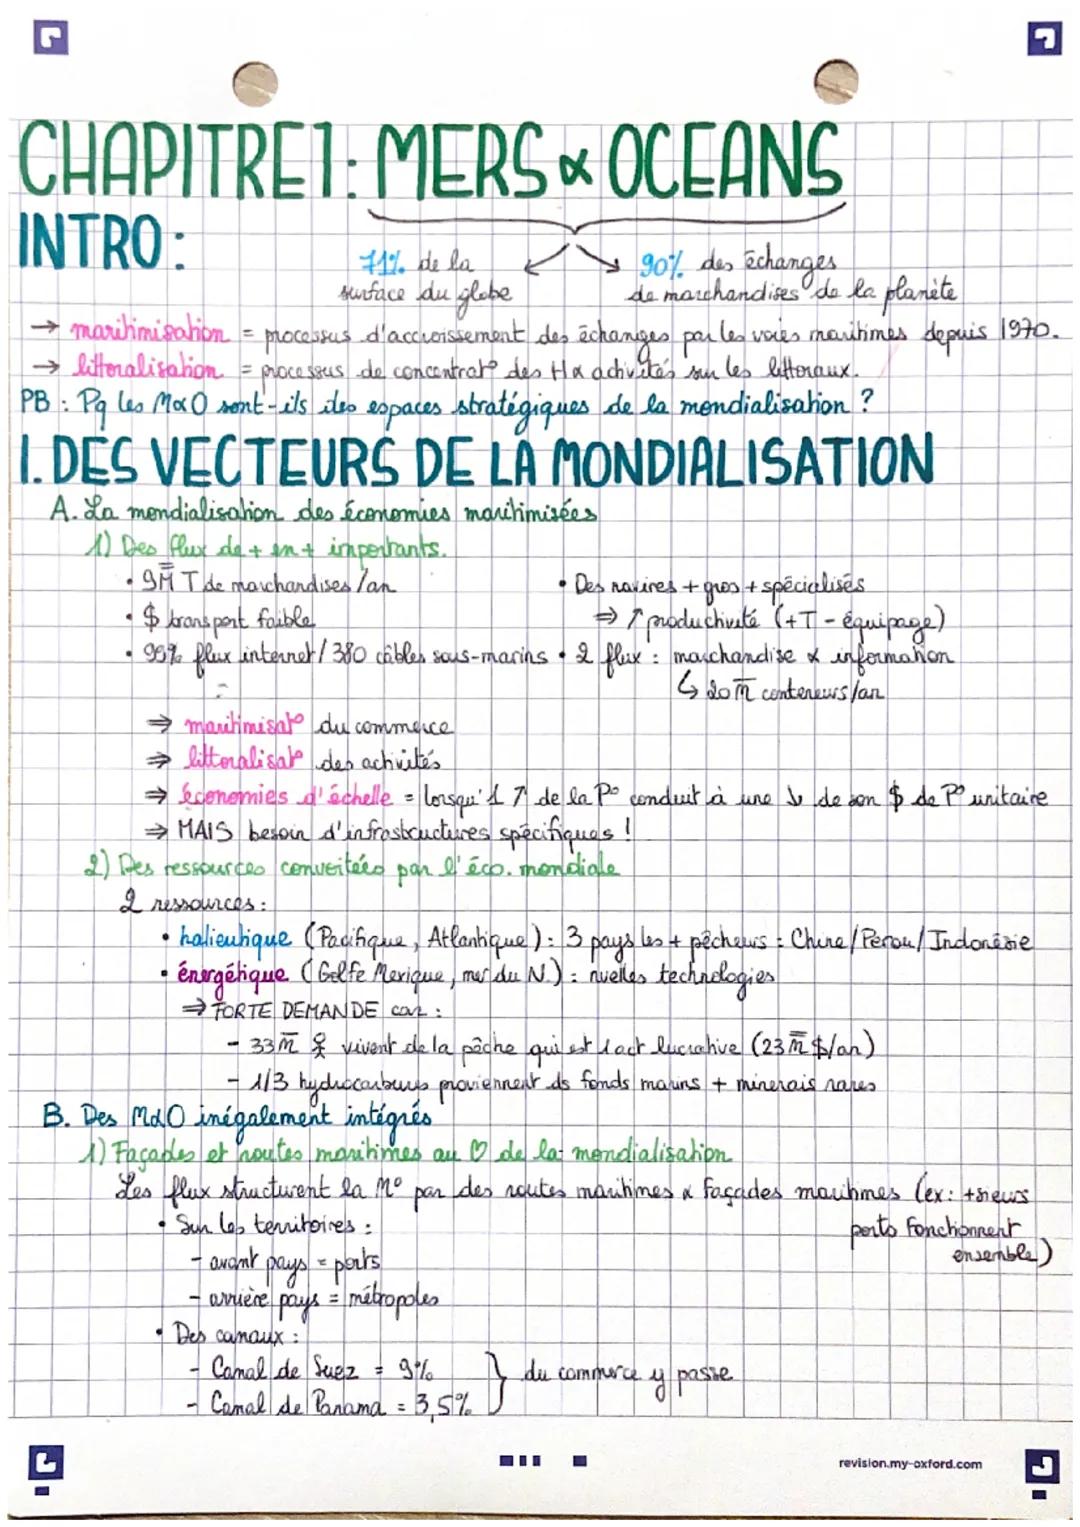 CHAPITRE 1: MERS & OCEANS
INTRO:
71% de la surface du globe
90% des échanges de marchandises de la planète
→ maritimisation = processus d'accroissement des échanges par les voies maritimes depuis 1970.
→ littoralisation = processus de concentrat° des H & activités sur les littoraux.
PB : Pq les M&O sont-ils des espaces stratégiques de la mondialisation ?
I. DES VECTEURS DE LA MONDIALISATION
A. La mondialisation des économies maritimisées
1) Des flux de + en + importants.
• 9M̿ T de marchandises /an
• $ transport faible
• 99% flux internet / 380 câbles sous-marins
• Des navires + gros + spécialisés
⇒ ↗ productivité (+T - équipage)
• 2 flux : marchandise & information
↳ 20 m̅ conteneurs/an
⇒ maritimisat° du commerce
⇒ littoralisat° des activités
⇒ économies d'échelle = lorsqu'1 ↗ de la P° conduit à une ↘ de son $ de P° unitaire
⇒ MAIS besoin d'infrastructures spécifiques !
2) Des ressources convoitées par l'éco. mondiale
2 ressources :
• halieutique (Pacifique, Atlantique) : 3 pays les + pêcheurs : Chine/Pérou/Indonésie
• énergétique (Golfe Mexique, mer du N.) : nvelles technologies
⇒ FORTE DEMANDE car :
- 33 m̅ vivent de la pêche qui est 1 act lucrative (23 m̿ $/an)
- 1/3 hydrocarbures proviennent ds fonds marins + minerais rares
B. Des M&O inégalement intégrés
1) Façades et routes maritimes au ♡ de la mondialisation
Les flux structurent la M° par des routes maritimes & façades maritimes (ex: +sieurs
ports fonctionnent
ensemble)
• Sur les territoires :
- avant pays = ports
- arrière pays = métropoles
• Des canaux :
- Canal de Suez = 9%
- Canal de Panama = 3,5%
} du commerce y passe
revision.my-oxford.com